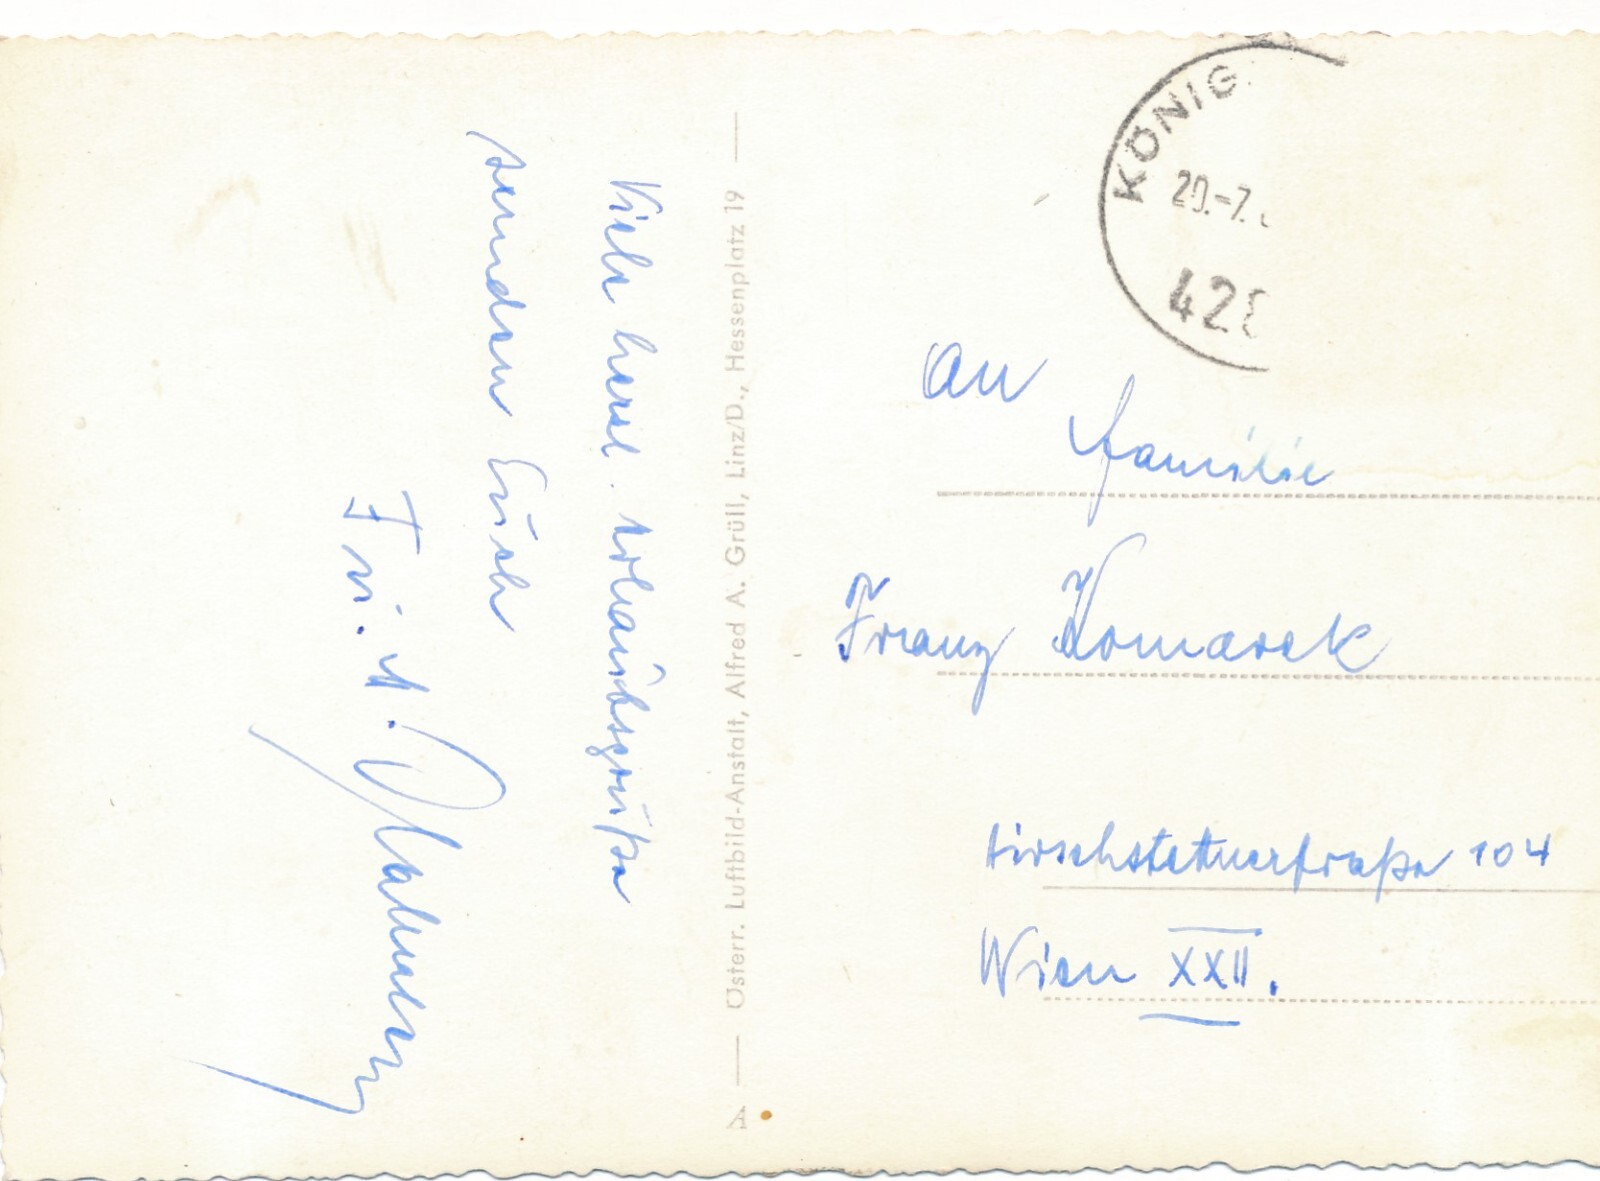 Viele herzl. Urlaubsgrüße
senden Euch
Österr. Luftbild-Anstalt, Alfred A. Grüll, Linz/D., Hessenplatz 19
A
KÖNIG
20.-7.
An
Familie
Franz Komarek
Hirschstettnerstraße 104
Wien XXII.